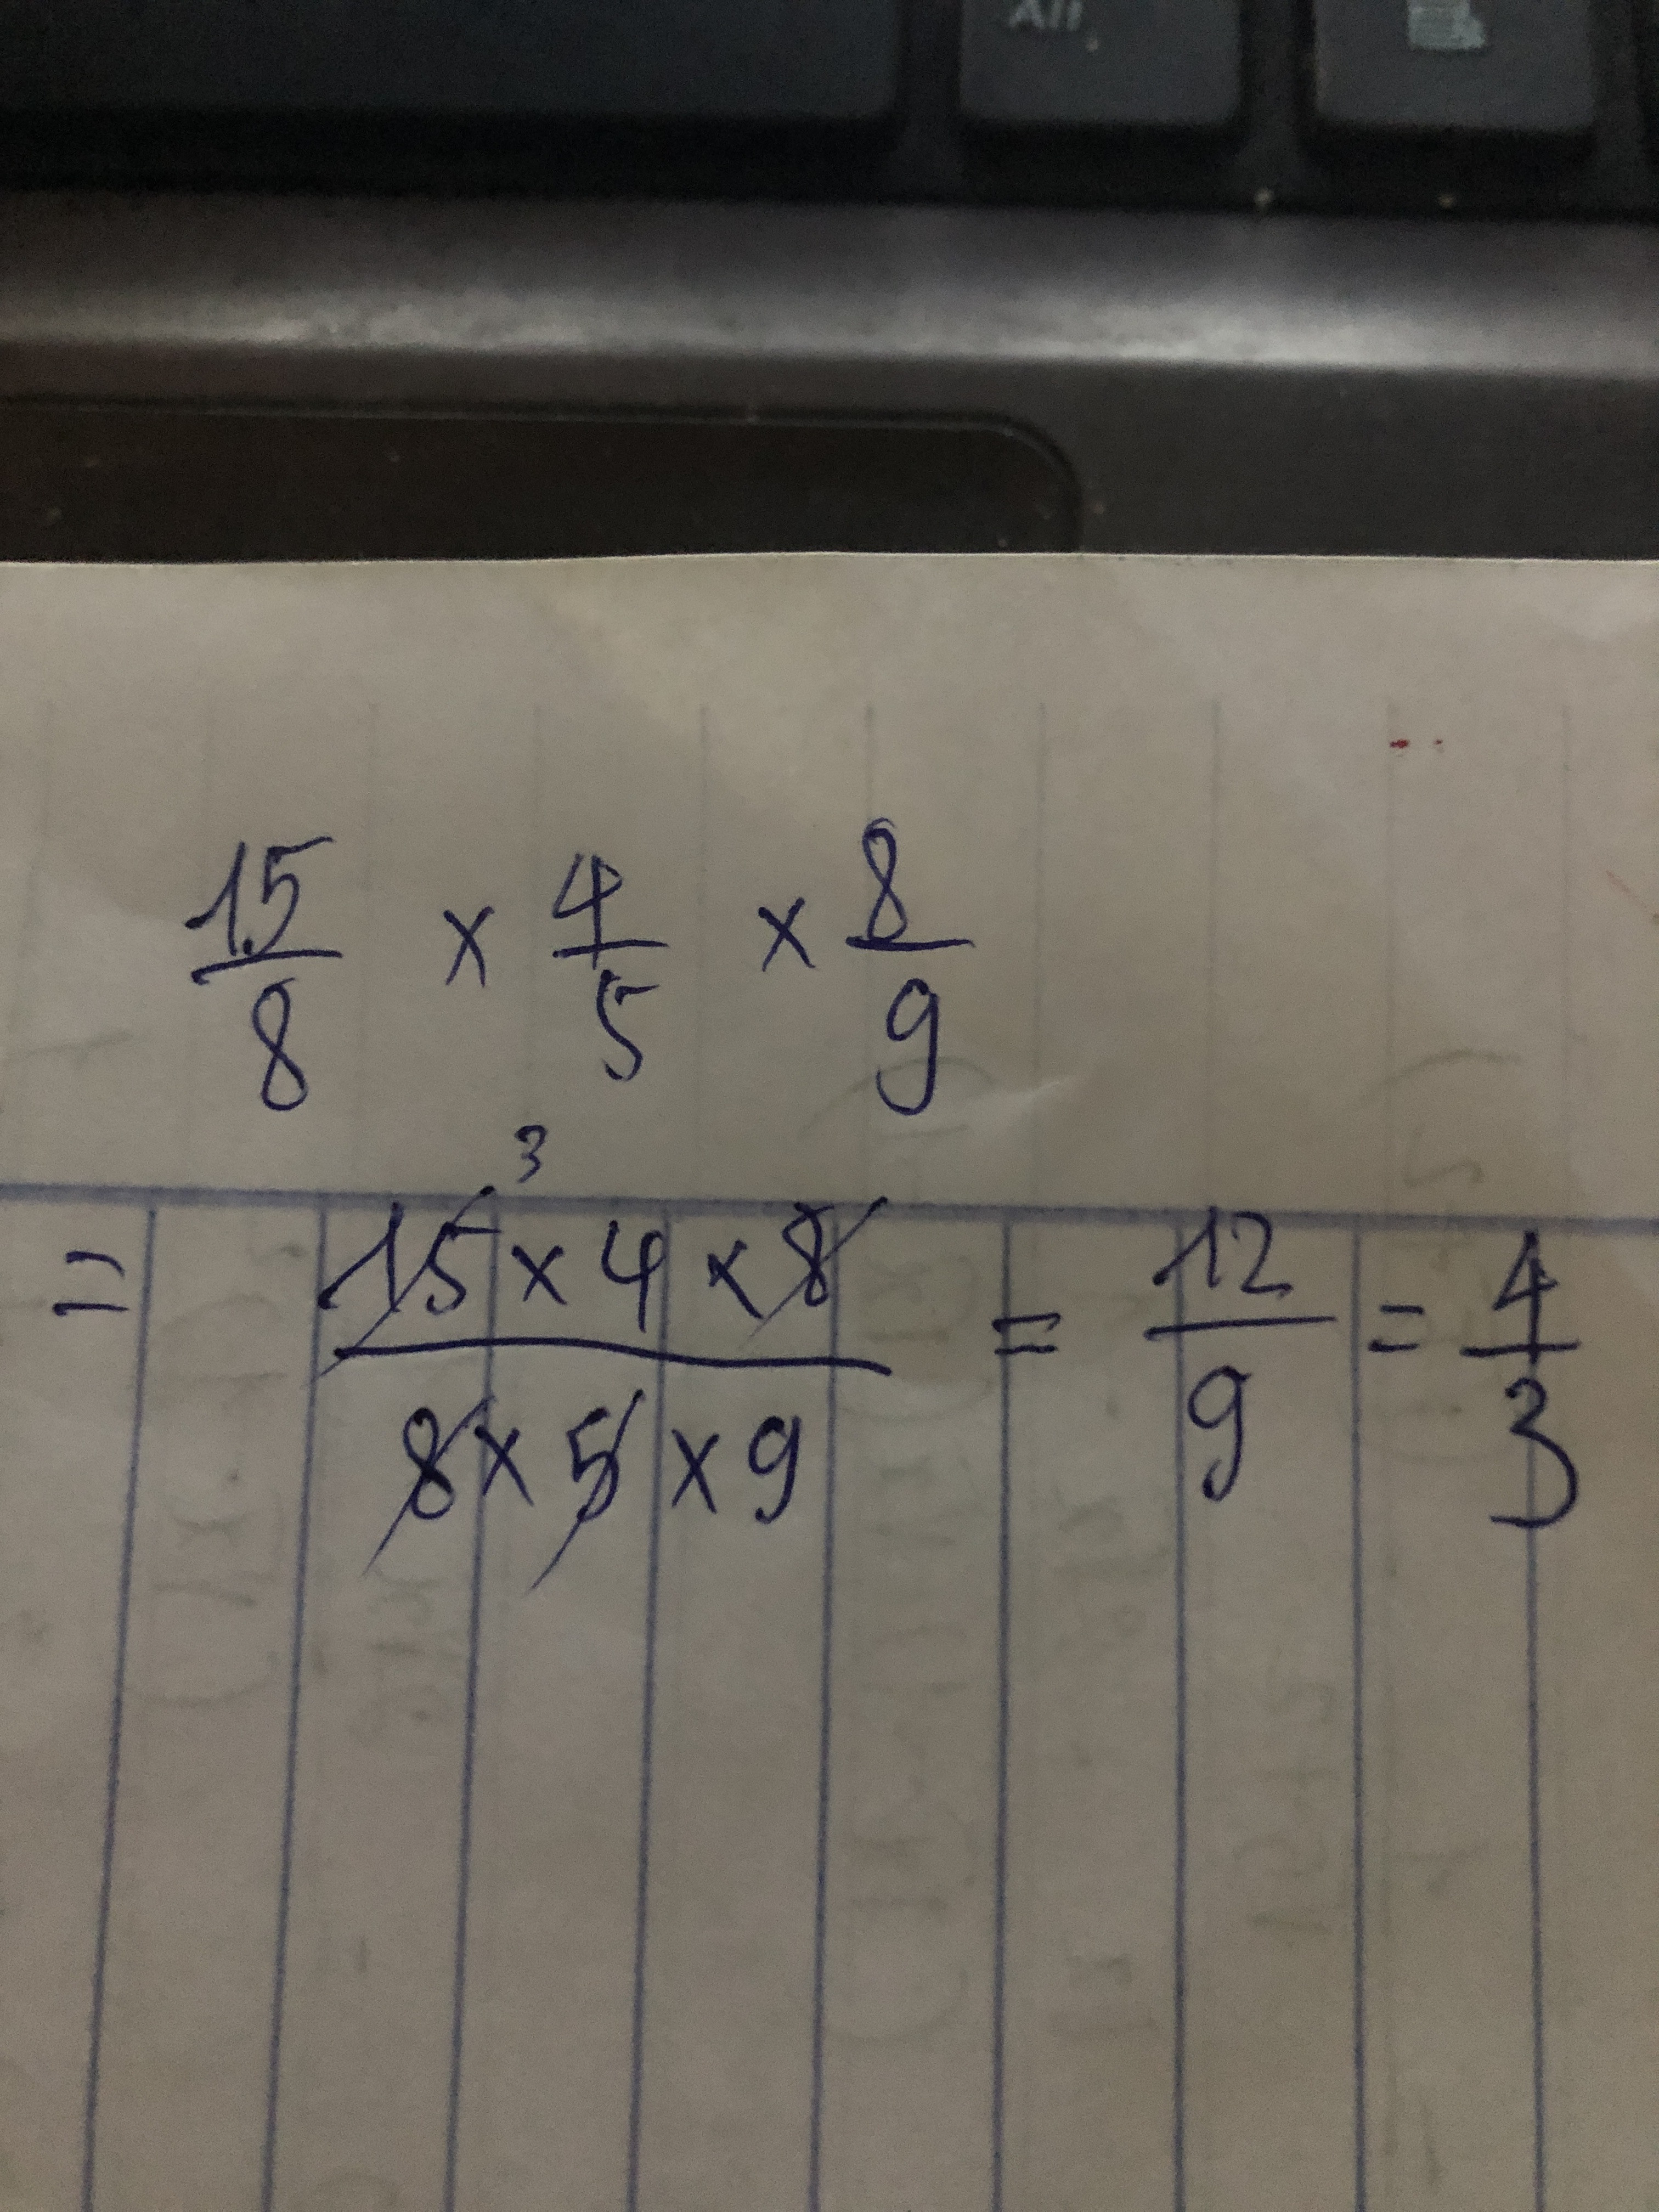 Alt
15/8 × 4/5 × 8/9
3
= 15 × 4 × 8 / 8 × 5 × 9 = 12/9 = 4/3